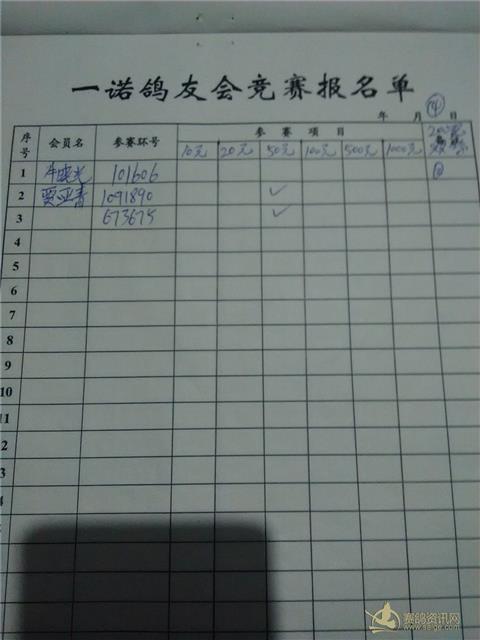 一诺鸽友会竞赛报名单
年 月 日
④
序号 会员名 参赛环号 参赛项目
10元 20元 50元 100元 500元 1000元
1 101606
2 贾亚青 1091890 ✓
3 673675 ✓
4
5
6
7
8
9
10
11
2
3
4
赛鸽资讯网